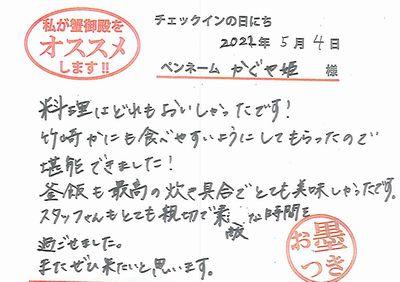 私が蟹御殿を
オススメ
します!!
チェックインの日にち
2022年 5月 4日
ペンネーム かぐや姫 様
料理はどれもおいしかったです!
竹崎かにも食べやすいようにしてもらったので
堪能できました!
釜飯も最高の炊き具合でとても美味しかったです。
スタッフさんもとても親切で素敵な時間を
過ごせました。
またぜひ来たいと思います。
お墨
つき